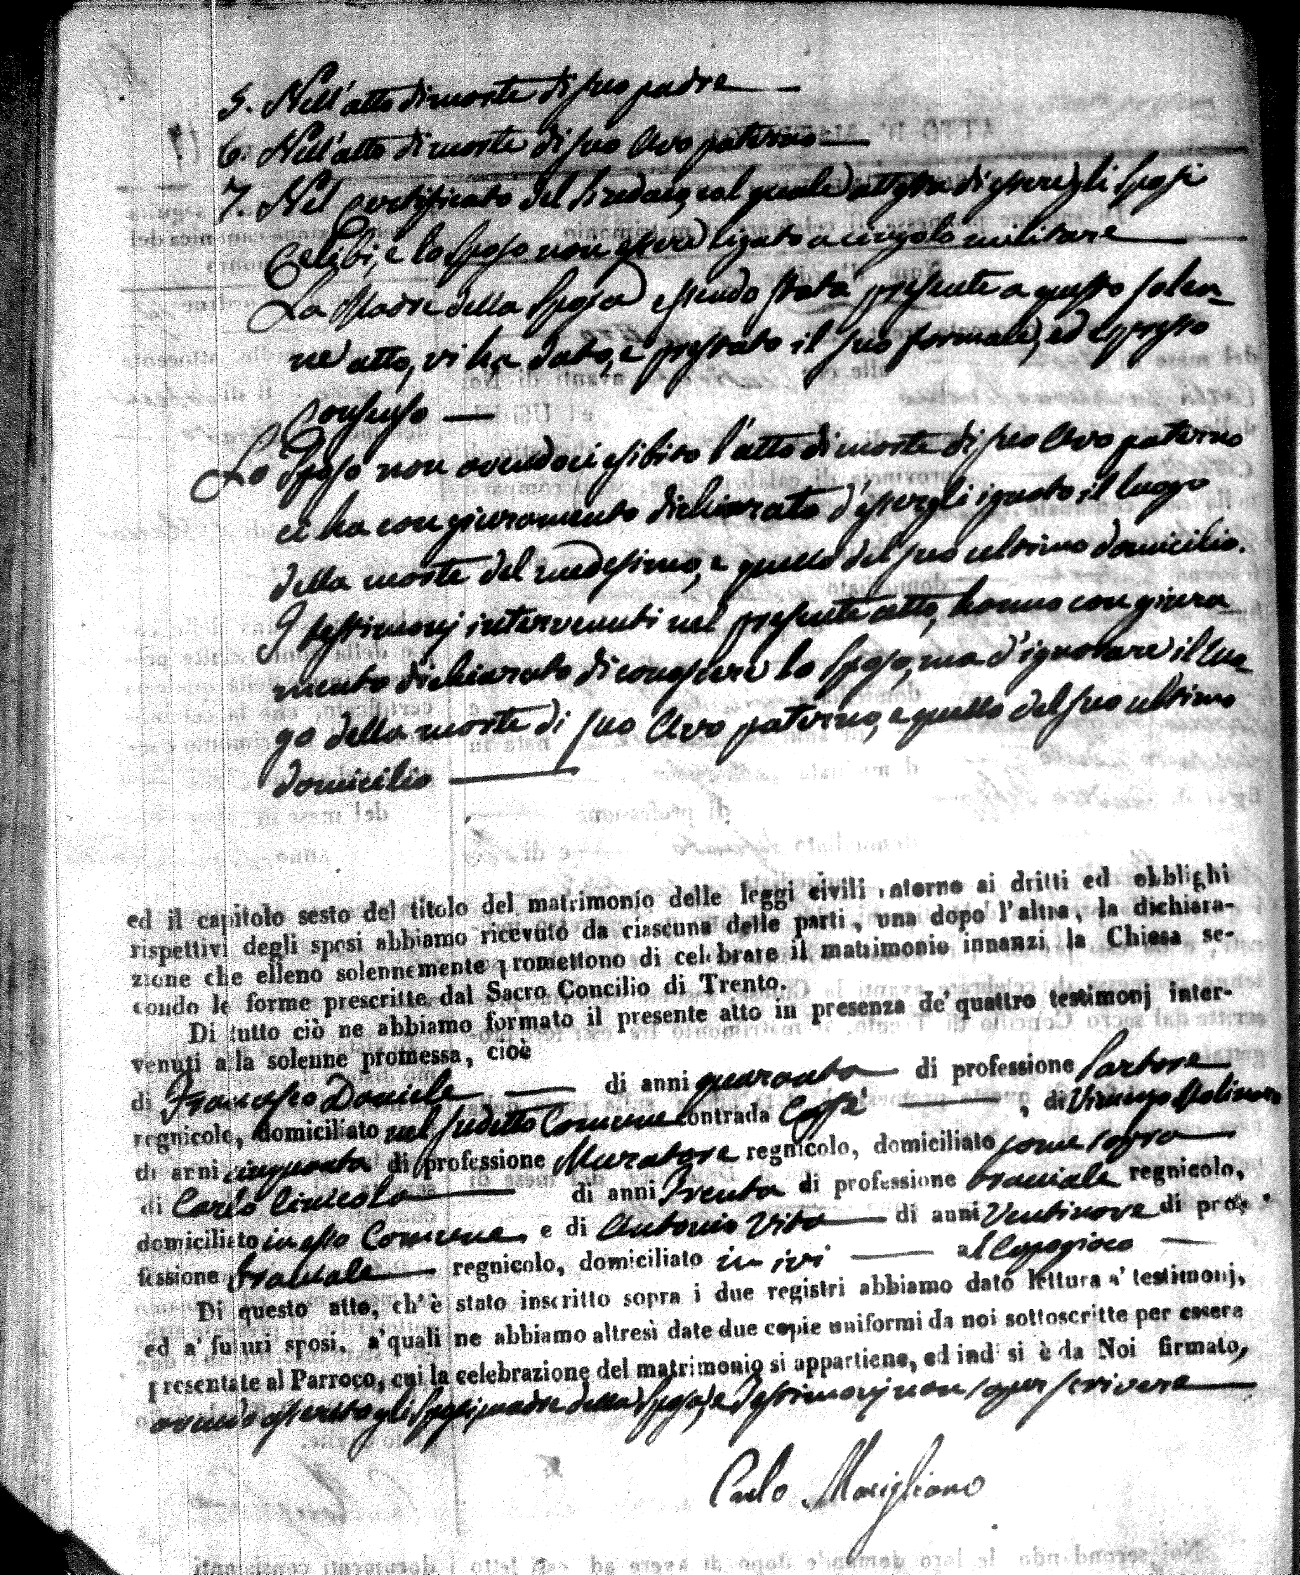 5. Nell'atto di morte di suo padre
6. Nell'atto di morte di suo Avo paterno
7. Nel Certificato del Sindaco, col quale attesta di essere gli Sposi
Celibi, e lo Sposo non essere ligato a cingolo militare
La Madre della Sposa essendo stata presente a questo solen-
ne atto, vi ha dato, e prestato il suo formale, ed espresso
Consenso
Lo Sposo non avendoci esibito l'atto di morte di suo Avo paterno
ci ha con giuramento dichiarato d'essergli ignoto il luogo
della morte del medesimo, e quello del suo ultimo domicilio.
I testimonj intervenuti nel presente atto, hanno con giura-
mento dichiarato di conoscere lo Sposo, ma d'ignorare il luo-
go della morte di suo Avo paterno, e quello del suo ultimo
domicilio
ed il capitolo sesto del titolo del matrimonio delle leggi civili intorno ai dritti ed obblighi
rispettivi degli sposi abbiamo ricevuto da ciascuna delle parti, una dopo l'altra, la dichiara-
zione che elleno solennemente promettono di celebrare il matrimonio innanzi la Chiesa se-
condo le forme prescritte dal Sacro Concilio di Trento.
Di tutto ciò ne abbiamo formato il presente atto in presenza de' quattro testimonj inter-
venuti alla solenne promessa, cioè
di Francesco Daniele di anni quaranta di professione Sartore
regnicolo, domiciliato nel suddetto Comune contrada , di Vincenzo Molinaro
di anni cinquanta di professione Muratore regnicolo, domiciliato come sopra
di Carlo di anni Trenta di professione braciale regnicolo,
domiciliato in esso Comune, e di Antonio Vito di anni Ventinove di pro-
fessione braciale regnicolo, domiciliato in ivi al
Di questo atto, ch'è stato inscritto sopra i due registri abbiamo dato lettura a' testimonj,
ed a' futuri sposi, a' quali ne abbiamo altresì date due copie uniformi da noi sottoscritte per essere
presentate al Parroco, cui la celebrazione del matrimonio si appartiene, ed indi si è da Noi firmato,
avendo asserito gli Sposi, madre della Sposa, e Testimonj non saper scrivere
Carlo Marigliano